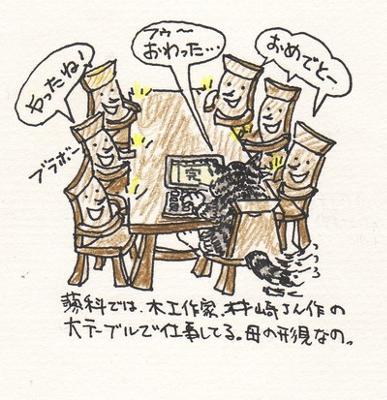 やったね!
フゥ〜
おわった…
おめでとー
ブラボー
完
蓼科では、木工作家、村崎さん作の
大テーブルで仕事してる。母の形見なの。